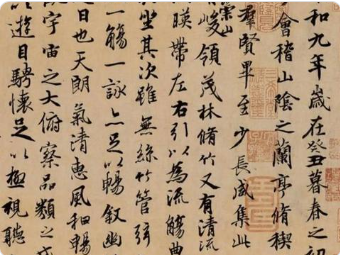 和九年歲在癸丑暮春之初
會稽山陰之蘭亭脩禊
羣賢畢至少長咸集此
崇山
峻領茂林脩竹又有清流
暎帶左右引以為流觴曲
坐其次雖無絲竹管弦
一觴一詠亦足以暢叙幽
日也天朗氣清惠風和暢
宇宙之大俯察品類之盛
遊目騁懷足以極視聽